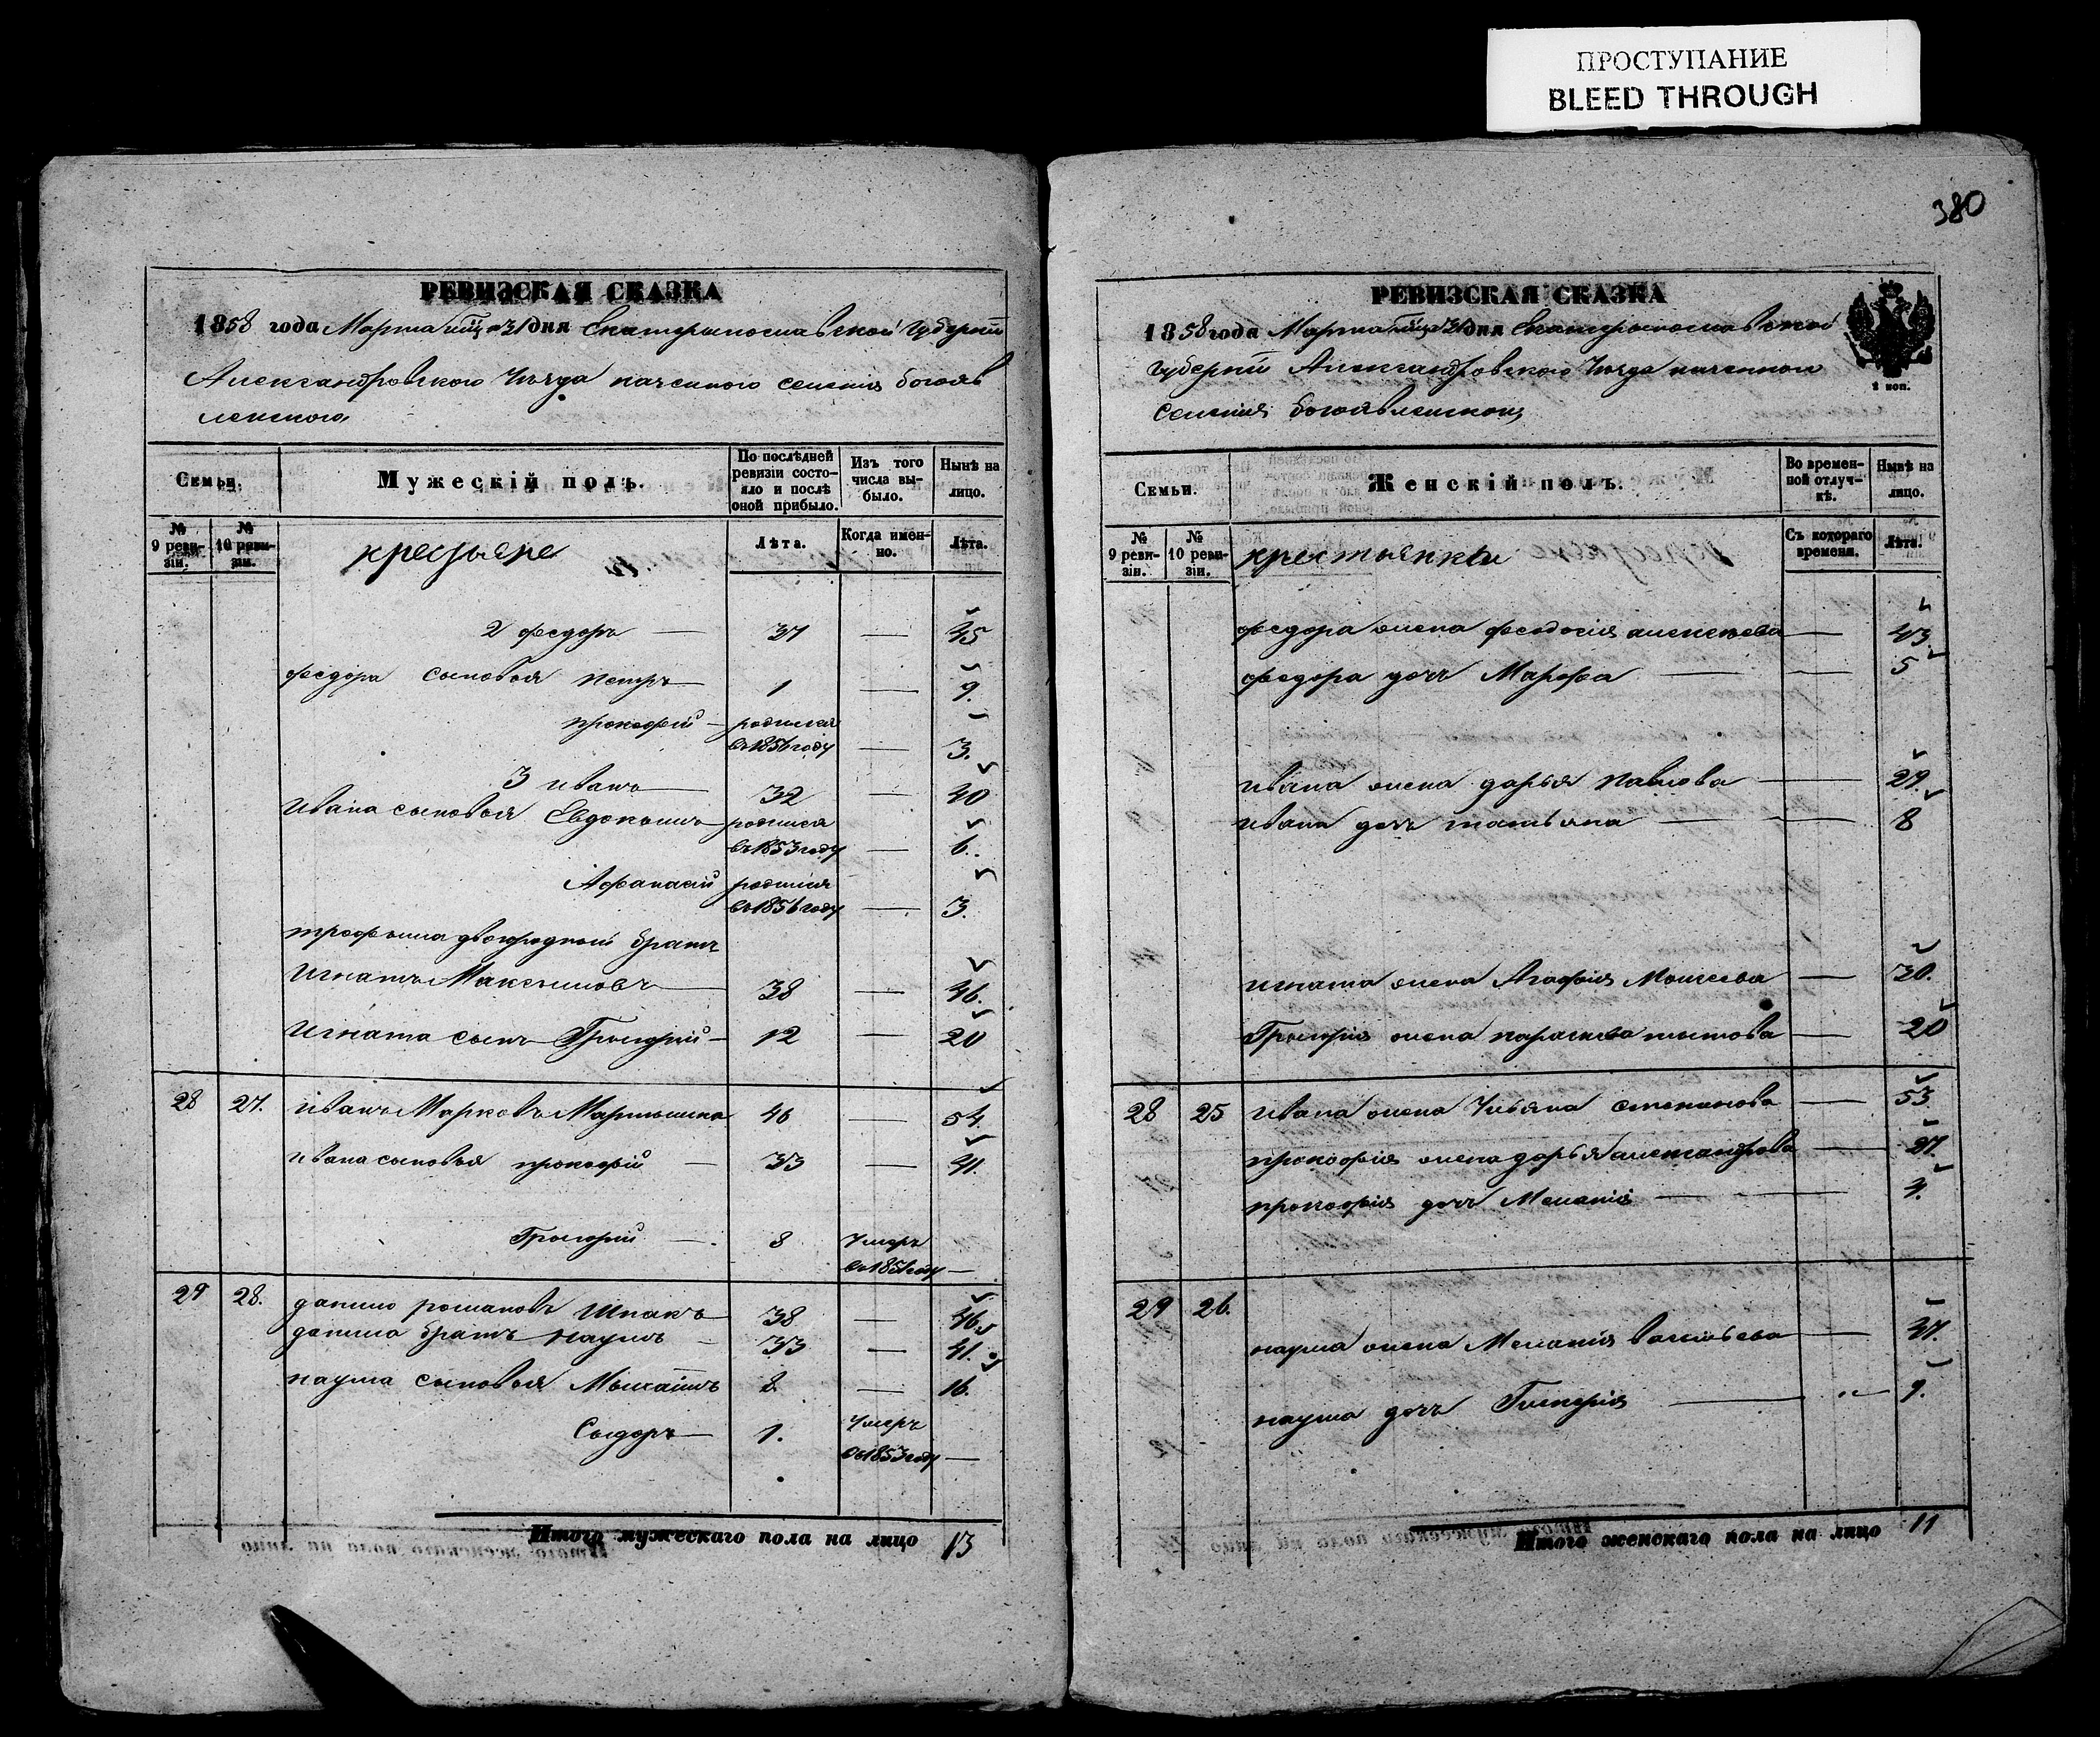 ПРОСТУПАНИЕ
BLEED THROUGH
380
РЕВИЗСКАЯ СКАЗКА
1858 года Марта 31 дня Екатеринославской Губерніи
Александровского Уезда казенного селенія богояв
ленского
Семьи.
Мужескій полъ.
По послѣдней ревизіи состояло и послѣ оной прибыло.
Изъ того числа выбыло.
Нынѣ на лицо.
№ 9 ревизіи.
№ 10 ревизіи.
крестьяне
Лѣта.
Когда именно.
Лѣта.
2 федоръ — 37 — 45
федора сыновья петръ 1 — 9.
прокофій — родился
въ 1856 году — 3.
3 иванъ 32 — 40
ивана сыновья Евдокимъ родился
въ 1853 году — 6.
Афанасій родился
въ 1856 году — 3.
трофима двоюродный братъ
игнатъ Максимовъ 38 — 46.
игната сынъ Григорій — 12 — 20
28 27. иванъ Марковъ 46 — 54.
ивана сыновья прокофій — 33 — 41.
Григорій — 8 Умеръ
въ 1851 году —
29 28. данило романовъ Шпакъ 38 — 46.
данила братъ наумъ — 33 — 41.
наума сыновья 8 — 16.
Сидоръ 1. Умеръ
въ 1853 году —
Итого мужескаго пола на лицо 13
РЕВИЗСКАЯ СКАЗКА
1858 года Марта 31 дня Екатеринославской
Губерніи Александровского Уезда казенного
селенія богоявленского
1 коп.
Семьи.
Женскій полъ.
Во временной отлучкѣ.
Нынѣ на лицо.
№ 9 ревизіи.
№ 10 ревизіи.
крестьянки
Съ котораго времени.
Лѣта.
федора жена феодосія алексеева — 43.
федора дочь Марфа — 5
ивана жена дарья павлова — 29.
ивана дочь татьяна — 8
игната жена Агафія Моисеева — 30.
Григорія жена параскева титова — 20
28 25 ивана жена Ульяна степанова — 53
прокофія жена дарья александрова — 27.
прокофія дочь Меланія — 4.
29 26. наума жена Меланія васильева — 37.
наума дочь Гликерія — 9.
Итого женскаго пола на лицо 11